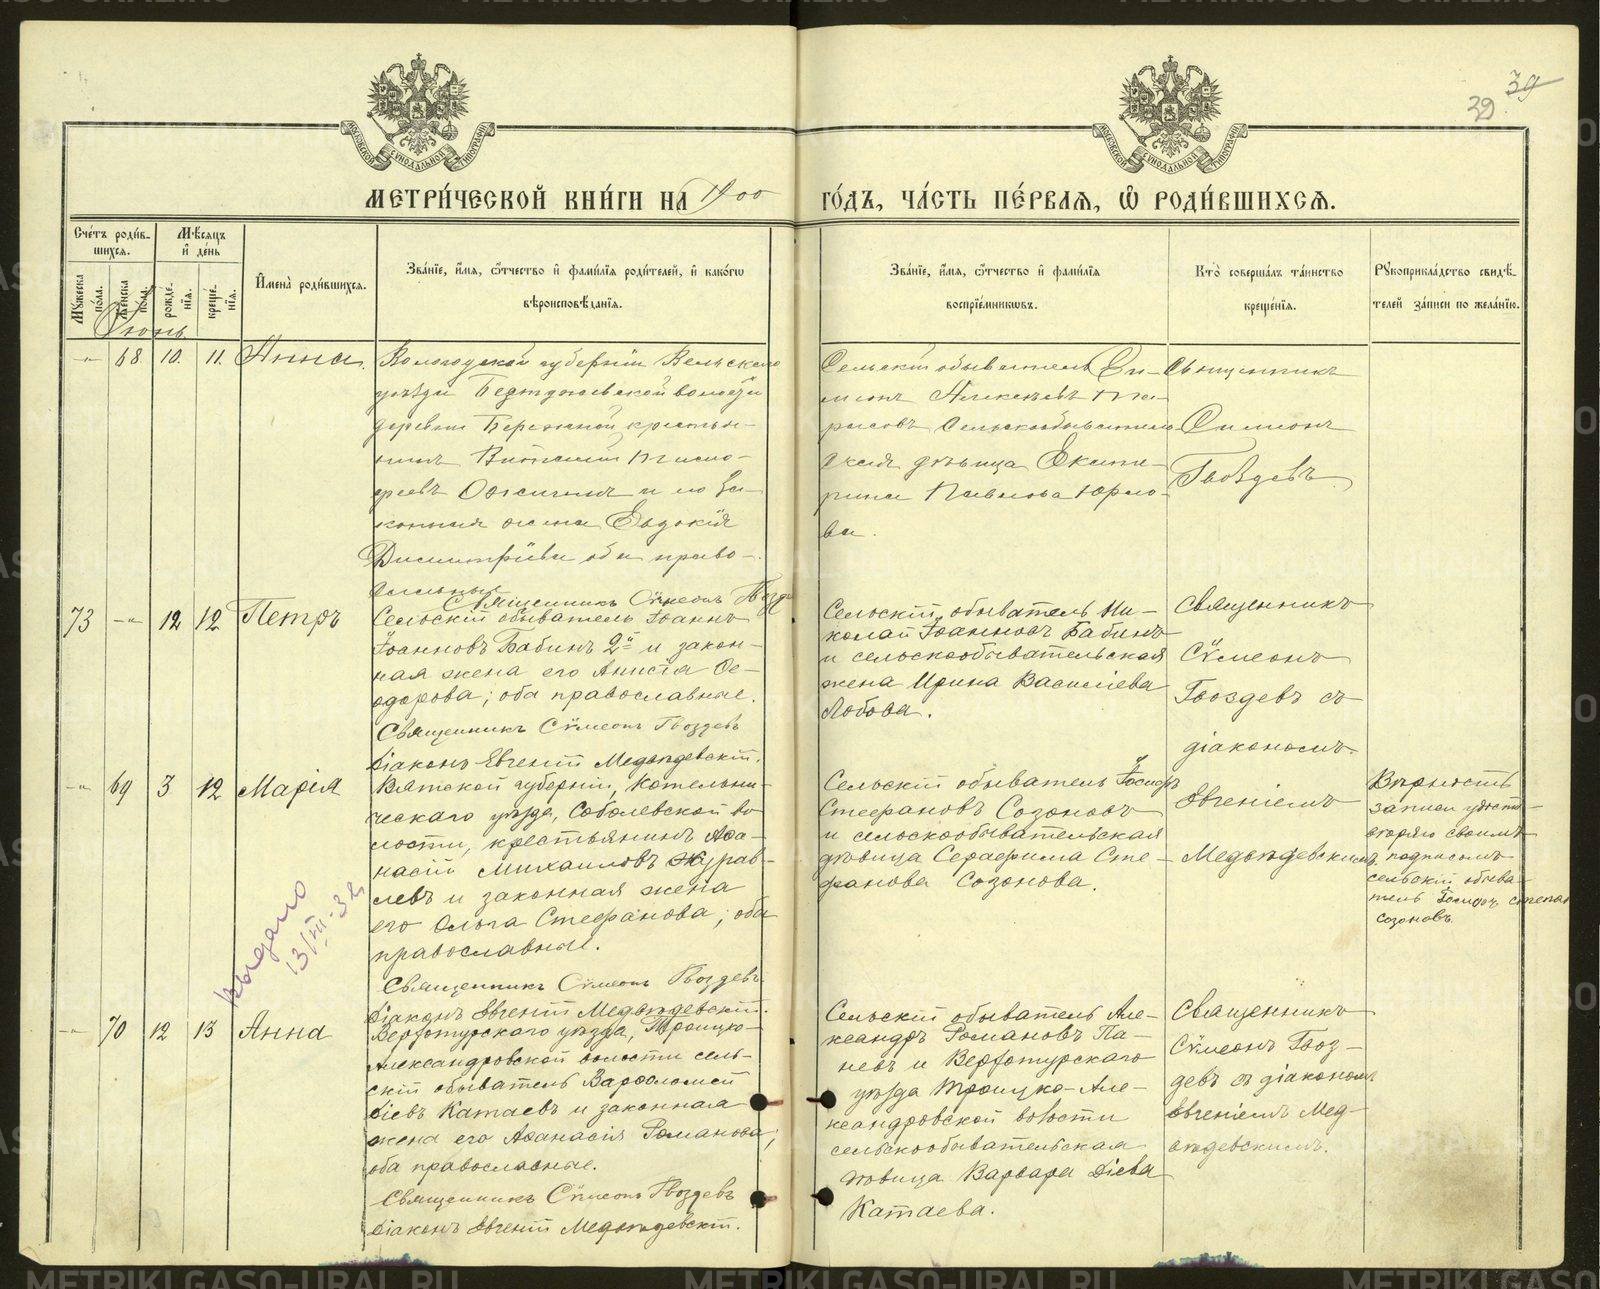 39
39
МОСКОВСКОЙ СѴНОДАЛЬНОЙ ТИПОГРАФІИ
МОСКОВСКОЙ СѴНОДАЛЬНОЙ ТИПОГРАФІИ
МЕТРИ́ЧЕСКОЙ КНИ́ГИ НА 1900
ГО́ДЪ, ЧА́СТЬ ПЕ́РВАЯ, Ѽ РОДИ́ВШИХСЯ.
Сче́тъ роди́в-
шихся.
Мѣ́сяцъ
и҆ де́нь
Мꙋ́жеска по́ла.
Же́нска по́ла.
рожде́-
нїя.
креще́-
нїя.
И҆мена̀ роди́вшихся.
Зва́нїе, и҆́мя, ѻ҆́тчество и҆ фами́лїя роди́телей, и҆ како́гѡ
вѣроисповѣ́данїя.
Зва́нїе, и҆́мя, ѻ҆́тчество и҆ фами́лїя
воспрїе́мникѡвъ.
Кто̀ соверша́лъ та́инство
креще́нїя.
Рꙋкоприкла́дство свидѣ́-
телей за́писи по жела́нїю.
Іюнь
-"- 68 10. 11. Анна.
Вологодской губерніи Вельскаго
уѣзда волости
деревни Бережной крестья-
нинъ Тимо-
феевъ и его за-
конная жена Евдокія
Димитріева оба право-
славные
Священникъ Сѵмеонъ Гвозде
Сельскій обыватель Си-
меонъ Алексѣевъ Та-
расовъ Сельскообыватель-
ская дѣвица Екате-
рина Павлова Юрло-
ва.
Священникъ
Симеонъ
Гвоздевъ
73 -"- 12 12 Петръ
Сельскій обыватель Іоаннъ
Іоанновъ Бабинъ 2й и закон-
ная жена его Анисія Ѳе-
одорова; оба православные.
Священникъ Сѵмеонъ Гвоздевъ
Діаконъ Евгеній Медвѣдевскій.
Сельскій обыватель Ни-
колай Іоанновъ Бабинъ
и сельскообывательская
жена Ирина Василіева
Лобова.
Священникъ
Сѵмеонъ
Гвоздевъ съ
діакономъ
Евгеніемъ
Медвѣдевскимъ
-"- 69 3 12 Марія
Вятской губерніи, Котельни-
ческаго уѣзда, Соболевской во-
лости, крестьянинъ Аѳа-
насій Михаиловъ Журав-
левъ и законная жена
его Ольга Стефанова; оба
православные.
Священникъ Сѵмеонъ Гвоздевъ
Діаконъ Евгеній Медвѣдевскій.
Сельскій обыватель Іосифъ
Стефановъ Созоновъ
и сельскообывательская
дѣвица Серафима Сте-
фанова Созонова.
Вѣрность
записи удосто-
вѣряю своимъ
подписомъ
сельскій обыва-
тель Іосифъ Степан
Созоновъ.
Выдано
13/VII-32
-"- 70 12 13 Анна
Верхотурскаго уѣзда, Троицко-
Александровской волости сель-
скій обыватель Варѳоломей
Діевъ Катаевъ и законная
жена его Аѳанасія Романова;
оба православные.
Священникъ Сѵмеонъ Гвоздевъ
Діаконъ Евгеній Медвѣдевскій.
Сельскій обыватель Але-
ксандръ Романовъ Па-
невъ и Верхотурскаго
уѣзда Троицко-Але-
ксандровской волости
сельскообывательская
дѣвица Варвара Діева
Катаева.
Священникъ
Сѵмеонъ Гвоз-
девъ съ діакономъ
Евгеніемъ Мед-
вѣдевскимъ.
METRIKI.GASO-URAL.RU METRIKI.GASO-URAL.RU METRIKI.GASO